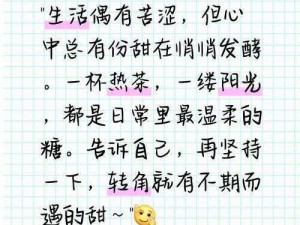 "生活偶有苦涩，但心
中总有份甜在悄悄发酵
。一杯热茶，一缕阳光
，都是日常里最温柔的
糖。告诉自己，再坚持
一下，转角就有不期而
遇的甜～"